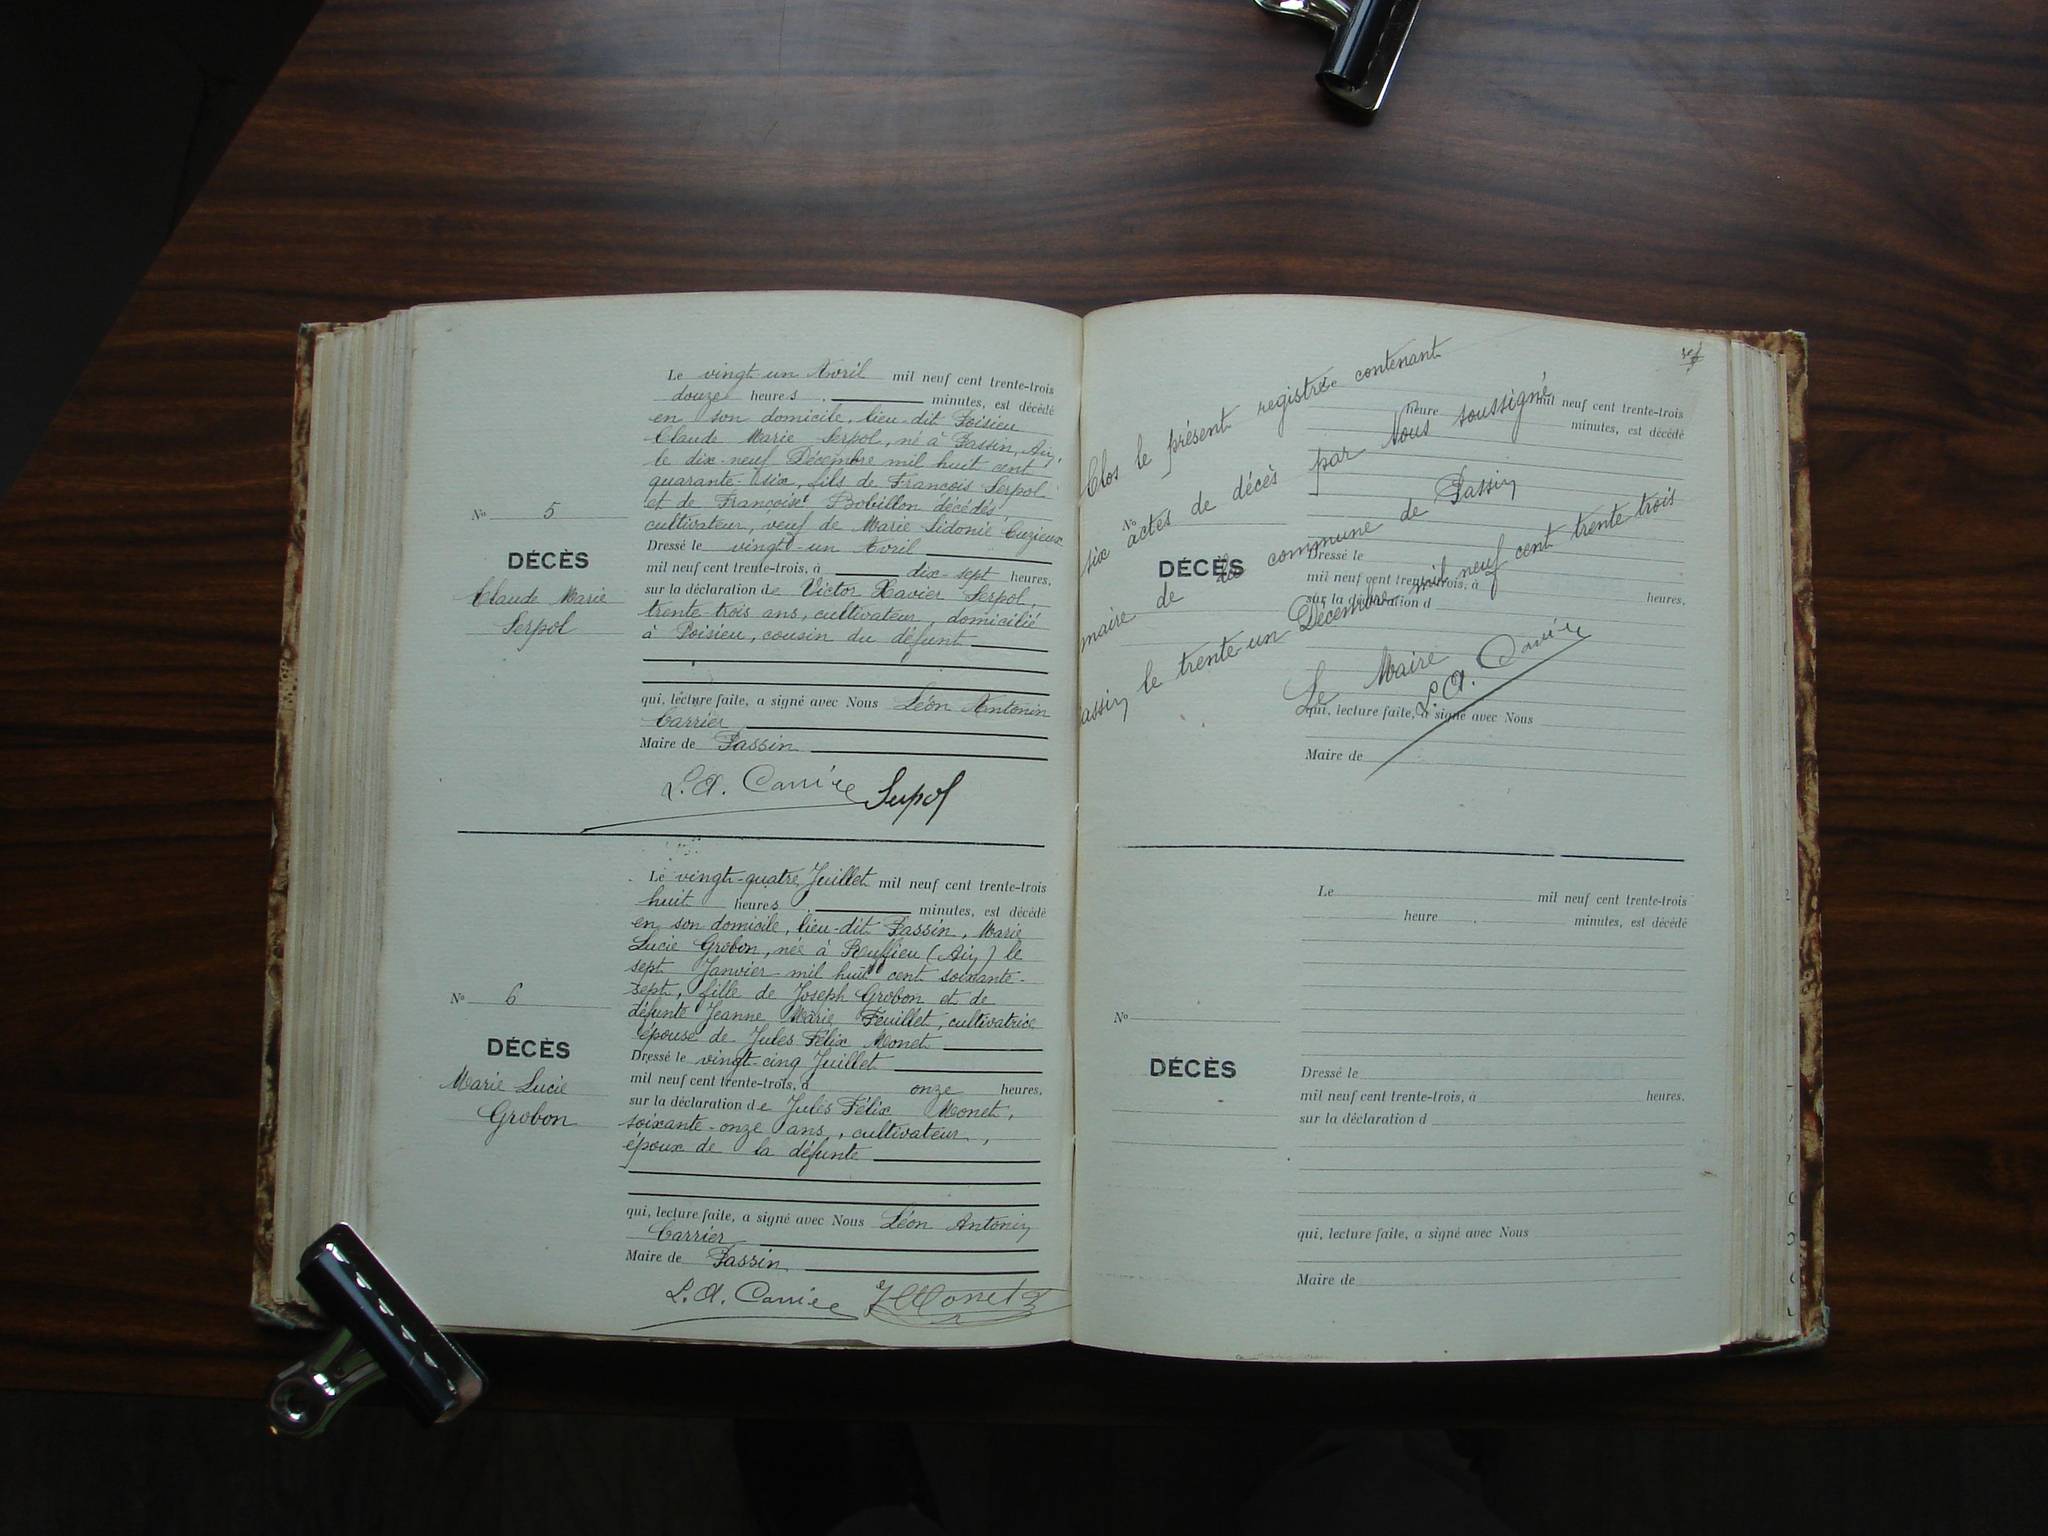 Le vingt-un Avril mil neuf cent trente-trois
douze heures minutes, est décédé
en son domicile, lieu-dit Poisieu
Claude Marie Serpol, né à Passin, Ain,
le dix-neuf Décembre mil huit cent
quarante-six, fils de François Serpol
et de Françoise Bobillon décédés,
cultivateur, veuf de Marie Sidonie Cuzieux
Dressé le vingt-un Avril
mil neuf cent trente-trois, à dix-sept heures,
sur la déclaration de Victor Xavier Serpol,
trente-trois ans, cultivateur, domicilié
à Poisieu, cousin du défunt
qui, lecture faite, a signé avec Nous Léon Antonin
Carrier
Maire de Passin
L. A. Carrier Serpol
No 5
DÉCÈS
Claude Marie
Serpol
Le vingt-quatre Juillet mil neuf cent trente-trois
huit heures minutes, est décédé
en son domicile, lieu-dit Passin, Marie
Lucie Grobon, née à Ruffieu (Ain) le
sept Janvier mil huit cent soixante-
sept, fille de Joseph Grobon et de
défunte Jeanne Marie Feuillet, cultivatrice
épouse de Jules Félix Monet
Dressé le vingt-cinq Juillet
mil neuf cent trente-trois, à onze heures,
sur la déclaration de Jules Félix Monet,
soixante-onze ans, cultivateur,
époux de la défunte
qui, lecture faite, a signé avec Nous Léon Antonin
Carrier
Maire de Passin
L. A. Carrier J Monet
No 6
DÉCÈS
Marie Lucie
Grobon
Clos le présent registre contenant
six actes de décès par Nous soussigné
maire de la commune de Passin
assin le trente-un Décembre mil neuf cent trente trois
Le Maire
L. A. Carrier
heure mil neuf cent trente-trois
minutes, est décédé
No
DÉCÈS
Dressé le
mil neuf cent trente-trois, à heures,
sur la déclaration d
qui, lecture faite, a signé avec Nous
Maire de
Le mil neuf cent trente-trois
heure minutes, est décédé
No
DÉCÈS
Dressé le
mil neuf cent trente-trois, à heures,
sur la déclaration d
qui, lecture faite, a signé avec Nous
Maire de